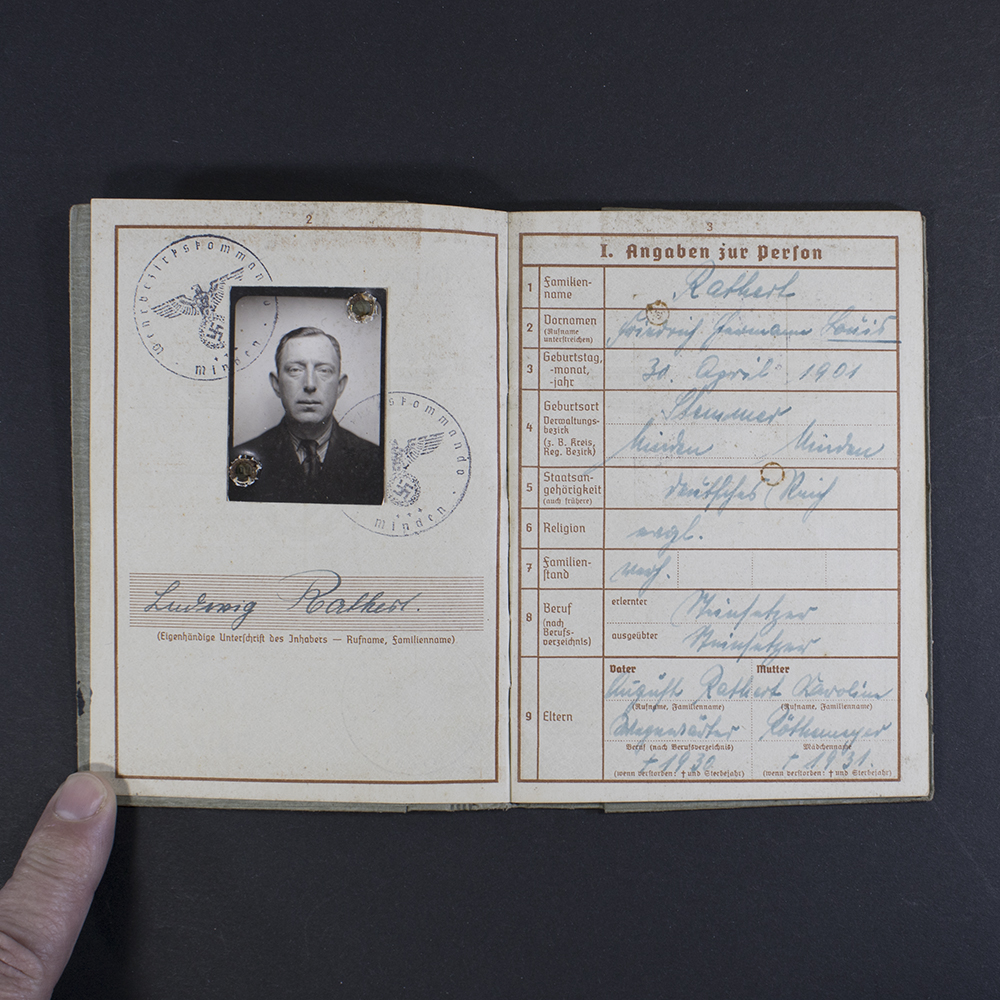 2
Wehrbezirkskommando
Minden
Wehrbezirkskommando
Minden
Ludwig Rathert.
(Eigenhändige Unterschrift des Inhabers — Rufname, Familienname)
3
I. Angaben zur Person
1 Familien-
name
Rathert
2 Vornamen
(Rufname
unterstreichen)
Friedrich Hermann Louis
3 Geburtstag,
-monat,
-jahr
30. April 1901
4 Geburtsort
Verwaltungs-
bezirk
(z. B. Kreis,
Reg. Bezirk)
Stemmer
Minden Minden
5 Staatsan-
gehörigkeit
(auch frühere)
deutsches Reich
6 Religion
evgl.
7 Familien-
stand
verh.
8 Beruf
(nach
Berufs-
verzeichnis)
erlernter Steinsetzer
ausgeübter Steinsetzer
9 Eltern
Vater Mutter
August Rathert Karoline
(Rufname, Familienname) (Rufname, Familienname)
Wegewärter
Beruf (nach Berufsverzeichnis) Mädchenname
† 1930 † 1931.
(wenn verstorben: † und Sterbejahr) (wenn verstorben: † und Sterbejahr)